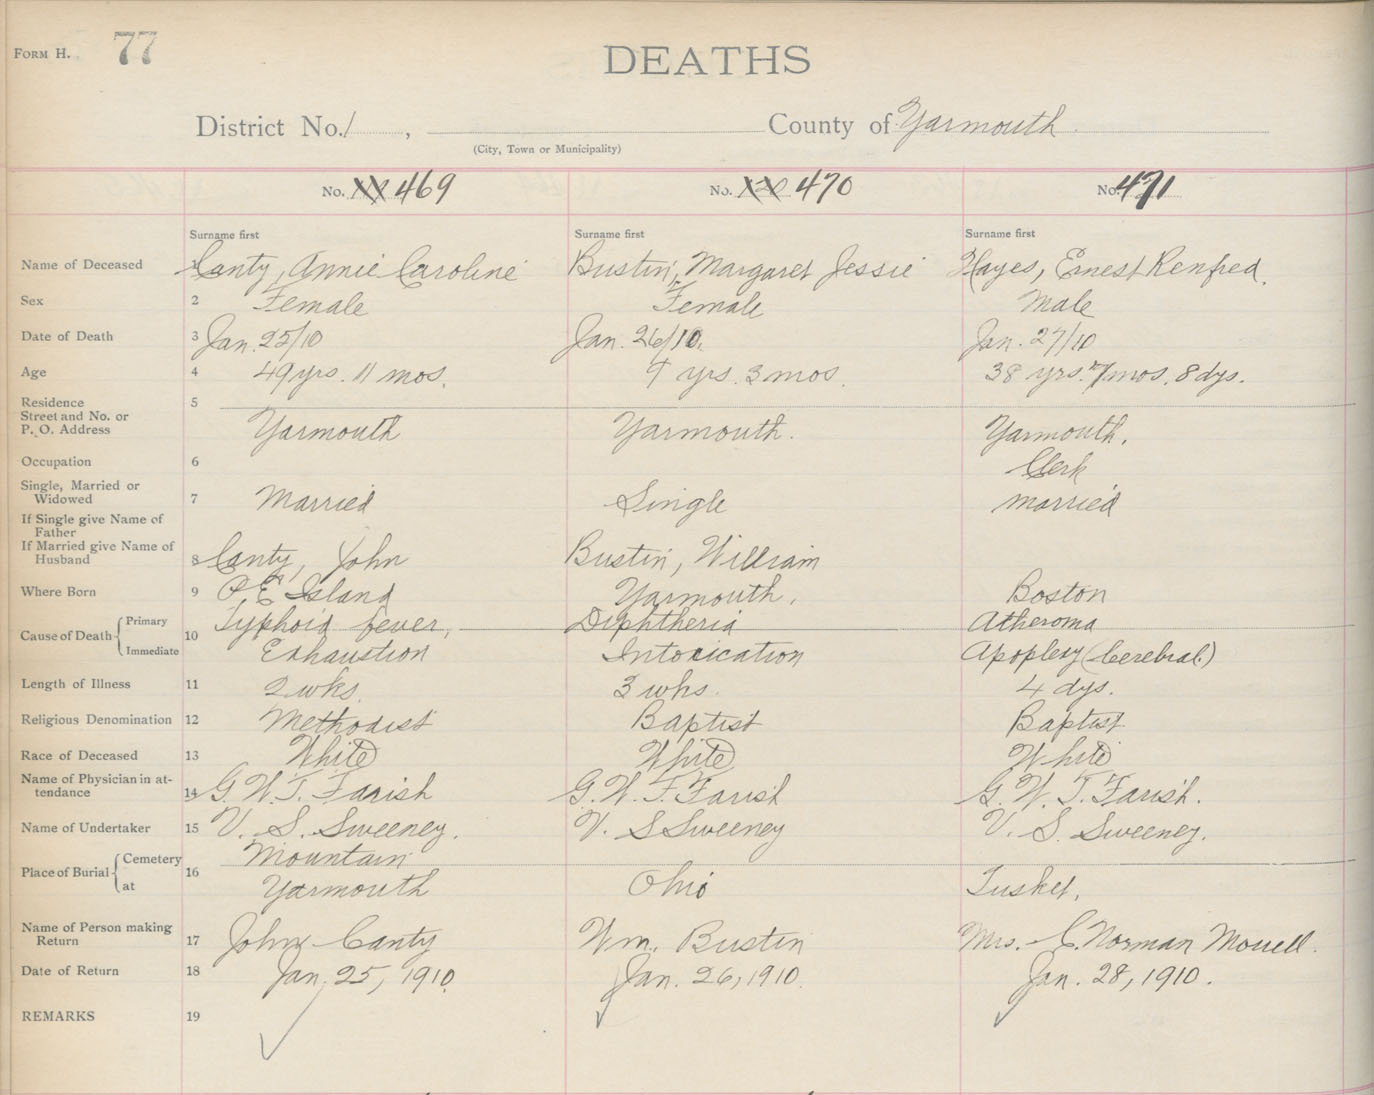 FORM H. 77
DEATHS
District No. 1, County of Yarmouth
(City, Town or Municipality)
No. 469 No. 470 No. 471
Surname first Surname first Surname first
Name of Deceased 1 Canty, Annie Caroline Bustin, Margaret Jessie Hayes, Ernest Renfred.
Sex 2 Female Female Male
Date of Death 3 Jan. 25/10 Jan. 26/10. Jan. 27/10
Age 4 49 yrs. 11 mos. 9 yrs. 3 mos. 38 yrs. 7 mos. 8 dys.
Residence 5
Street and No. or
P. O. Address Yarmouth Yarmouth. Yarmouth.
Occupation 6 Clerk
Single, Married or
Widowed 7 Married Single married
If Single give Name of
Father
If Married give Name of
Husband 8 Canty, John Bustin, William
Where Born 9 P. E. Island Yarmouth. Boston
Cause of Death 10 Primary Typhoid fever, Diphtheria Atheroma
Immediate Exhaustion Intoxication Apoplexy (Cerebral)
Length of Illness 11 2 wks 3 wks. 4 dys.
Religious Denomination 12 Methodist Baptist Baptist
Race of Deceased 13 White White White
Name of Physician in at-
tendance 14 G. W. T. Farish G. W. T. Farish G. W. T. Farish.
Name of Undertaker 15 V. S. Sweeney. V. S Sweeney V. S. Sweeney.
Place of Burial 16 Cemetery Mountain
at Yarmouth Ohio Tusket.
Name of Person making
Return 17 John Canty Wm. Bustin Mrs. C. Norman
Date of Return 18 Jan. 25, 1910. Jan. 26, 1910. Jan. 28, 1910.
REMARKS 19